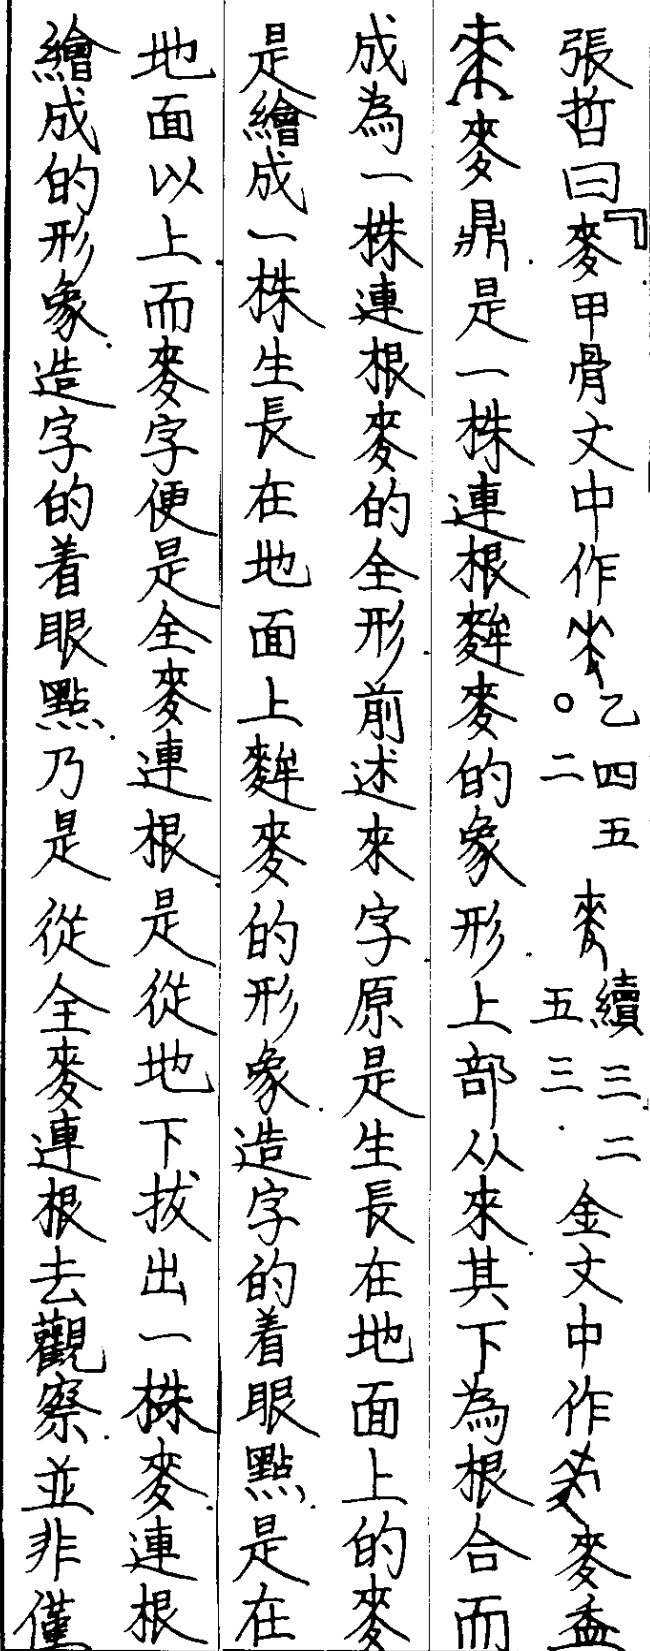 張哲曰『麥甲骨文中作乙四五〇二續三二五三金文中作麥盉
麥鼎是一株連根麰麥的象形上部从來其下為根合而
成為一株連根麥的全形前述來字原是生長在地面上的麥
是繪成一株生長在地面上麰麥的形象造字的着眼點是在
地面以上而麥字便是全麥連根是從地下拔出一株麥連根
繪成的形象造字的着眼點乃是從全麥連根去觀察並非僅